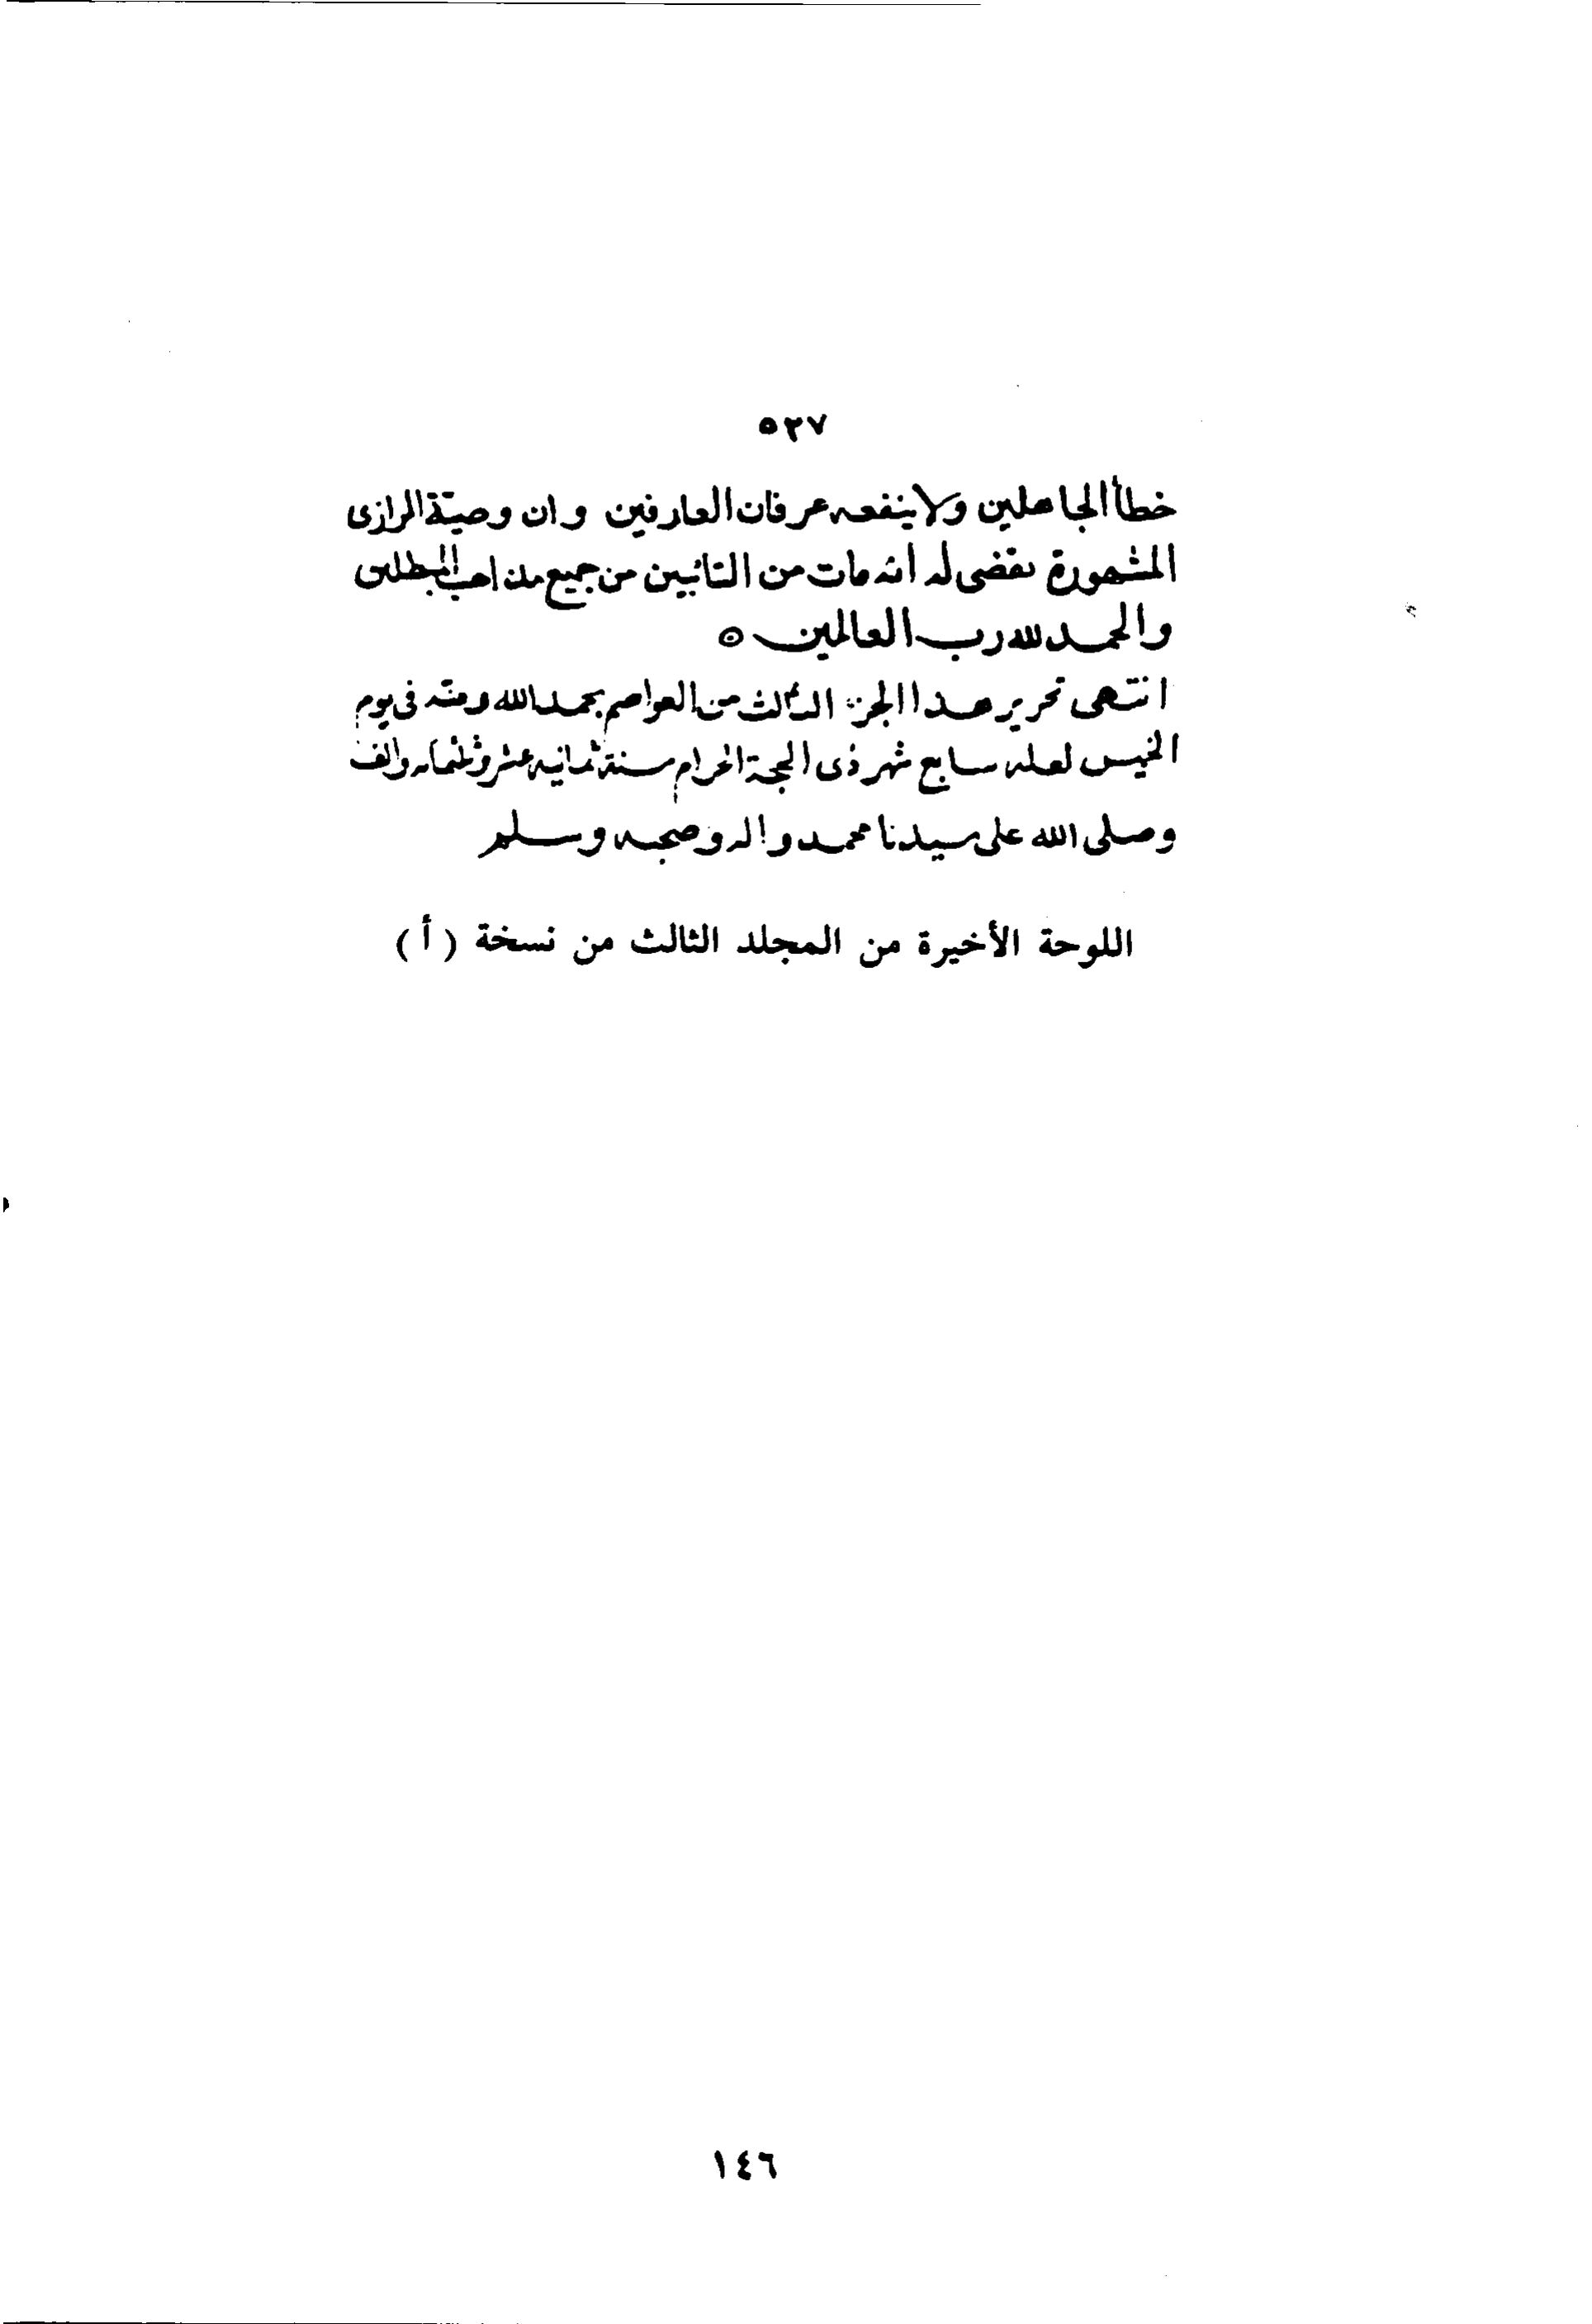 ٥٣٧
خطأ الجاهلين ولا ينفعه عرفان العارفين وان وصيّة الرازى
المشهورة تقضى له انه مات من التائبين من جميع مذاهب المبطلين
والحمد لله رب العالمين
انتهى تحرير هذا الجزء الثالث من العواصم بحمد الله ومنّه فى يوم
الخميس لعله سابع شهر ذى الحجة الحرام سنة ثمانيه عشر وثلثمايه والف
وصلى الله على سيدنا محمد وآله وصحبه وسلم
اللوحة الأخيرة من المجلد الثالث من نسخة ( أ )
١٤٦